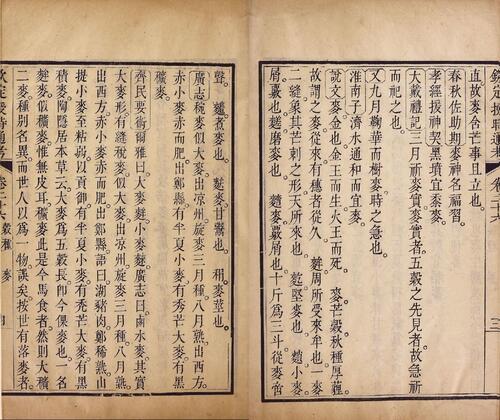 欽定授時通考 卷二十六 三
直故麥含芒事且立也。
春秋佐助期麥神名福習。
孝經援神契黑墳宜黍麥。
大戴禮記三月祈麥實麥實者五穀之先見者故急祈
而祀之也。
又九月鞠華而樹麥時之急也。
淮南子濟水通和而宜麥。
說文麥。金也。金王而生火王而死。麥芒穀秋種厚薶
故謂之麥從來有穗者從夂。 周所受來牟也一麥
二縫象其芒刺之形天所來也。 麧堅麥也。 小麥
屑覈也。 磨麥也。 麥覈屑也。十斤為三斗從麥啻
聲。 麷煮麥也。 麥甘鬻也。 稍。麥莖也。
廣志稅麥似大麥出涼州旋麥三月種八月熟出西方
赤小麥赤而肥出鄭縣有半夏小麥有禿芒大麥有黑
穬麥。
齊民要術爾雅曰大麥麰小麥麳廣志曰虜水麥其實
大麥形有縫稅麥似大麥出涼州旋麥三月種八月熟
出西方赤小麥赤而肥出鄭縣語曰湖豬肉鄭稀熟山
提小麥至粘弱以貢御有半夏小麥有禿芒大麥有黑
穬麥陶隱居本草云大麥為五穀長即今倮麥也一名
麰麥似穬麥惟無皮耳穬麥此是今馬食者然則大穬
二麥種別名異而世人以為一物誤矣按世有落麥者。
欽定授時通考 卷二十六 穀種 麥